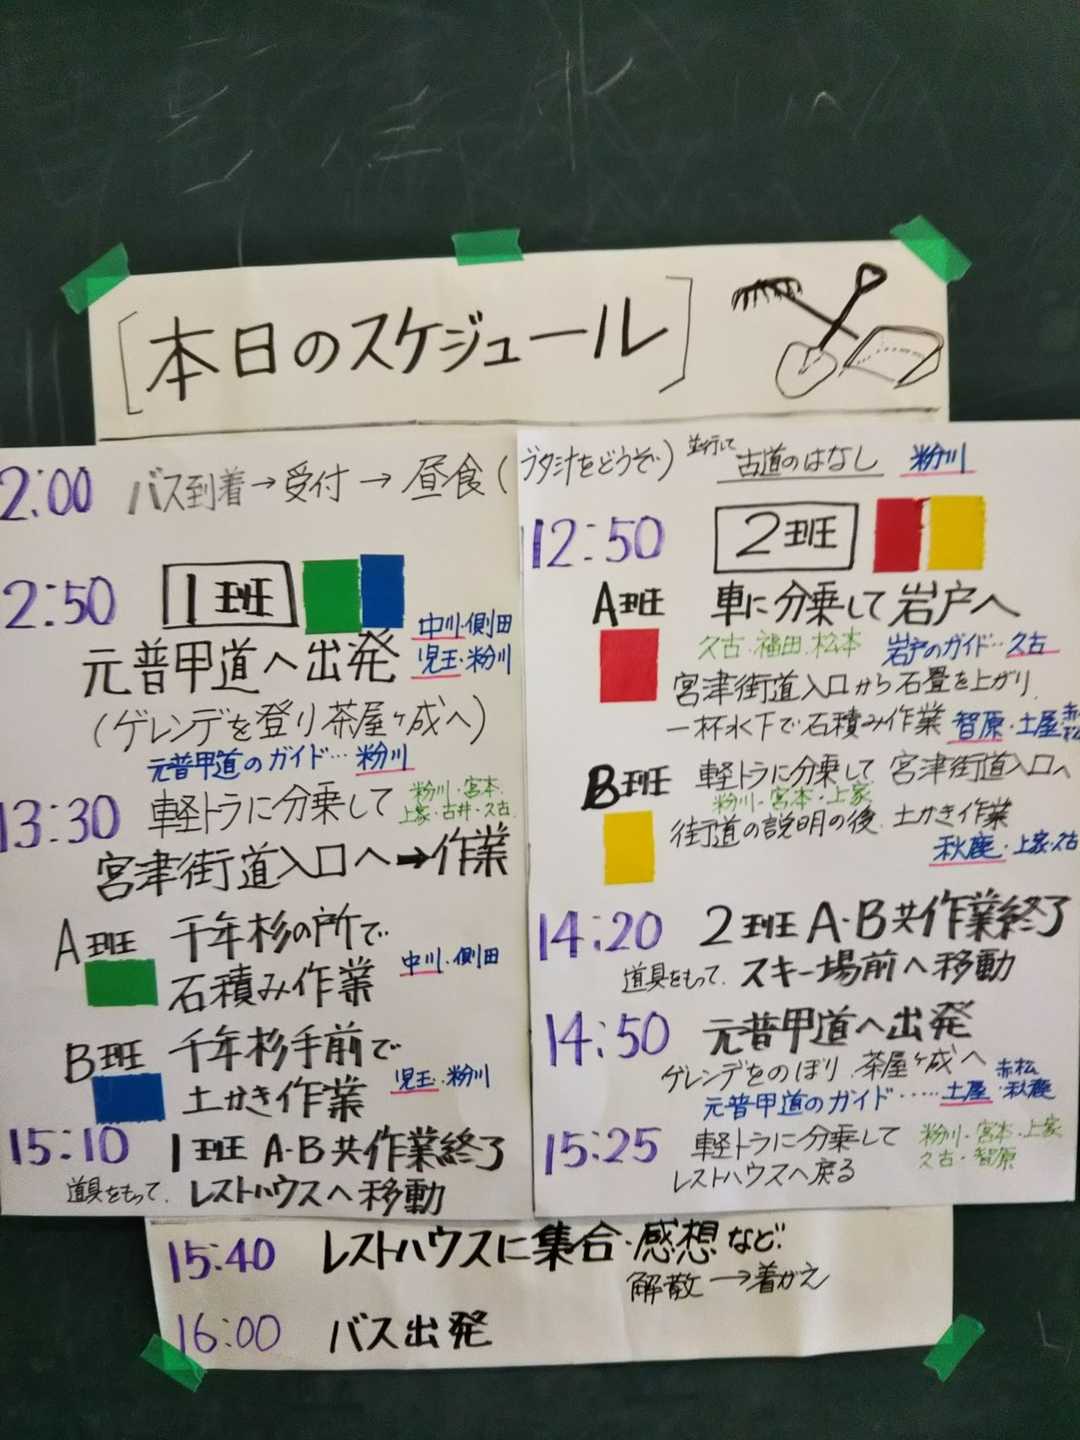 [本日のスケジュール]
2:00 バス到着→受付→昼食(ブタ汁をどうぞ) 並行して 古道のはなし 粉川
2:50 1班
中川・側田
元普甲道へ出発 児玉・粉川
(ゲレンデを登り茶屋ヶ成へ)
元普甲道のガイド…粉川
13:30 軽トラに分乗して 粉川・宮本・
上家・古井・久古
宮津街道入口へ→作業
A班 千年杉の所で
石積み作業 中川・側田
B班 千年杉手前で
土かき作業 児玉・粉川
15:10 1班 A・B共作業終了
道具をもって、レストハウスへ移動
12:50 2班
A班 車に分乗して岩戸へ
久古・福田・松本 岩戸のガイド…久古
宮津街道入口から石畳を上がり、
一杯水下で石積み作業 智原・土屋 赤松
B班 軽トラに分乗して 宮津街道入口へ
粉川・宮本・上家
街道の説明の後、土かき作業
秋鹿・上家・久古
14:20 2班 A・B共作業終了
道具をもって、スキー場前へ移動
14:50 元普甲道へ出発
ゲレンデをのぼり、茶屋ヶ成へ
元普甲道のガイド……土屋・秋鹿 赤松
15:25 軽トラに分乗して 粉川・宮本・上家
レストハウスへ戻る 久古・智原
15:40 レストハウスに集合・感想など
解散→着がえ
16:00 バス出発